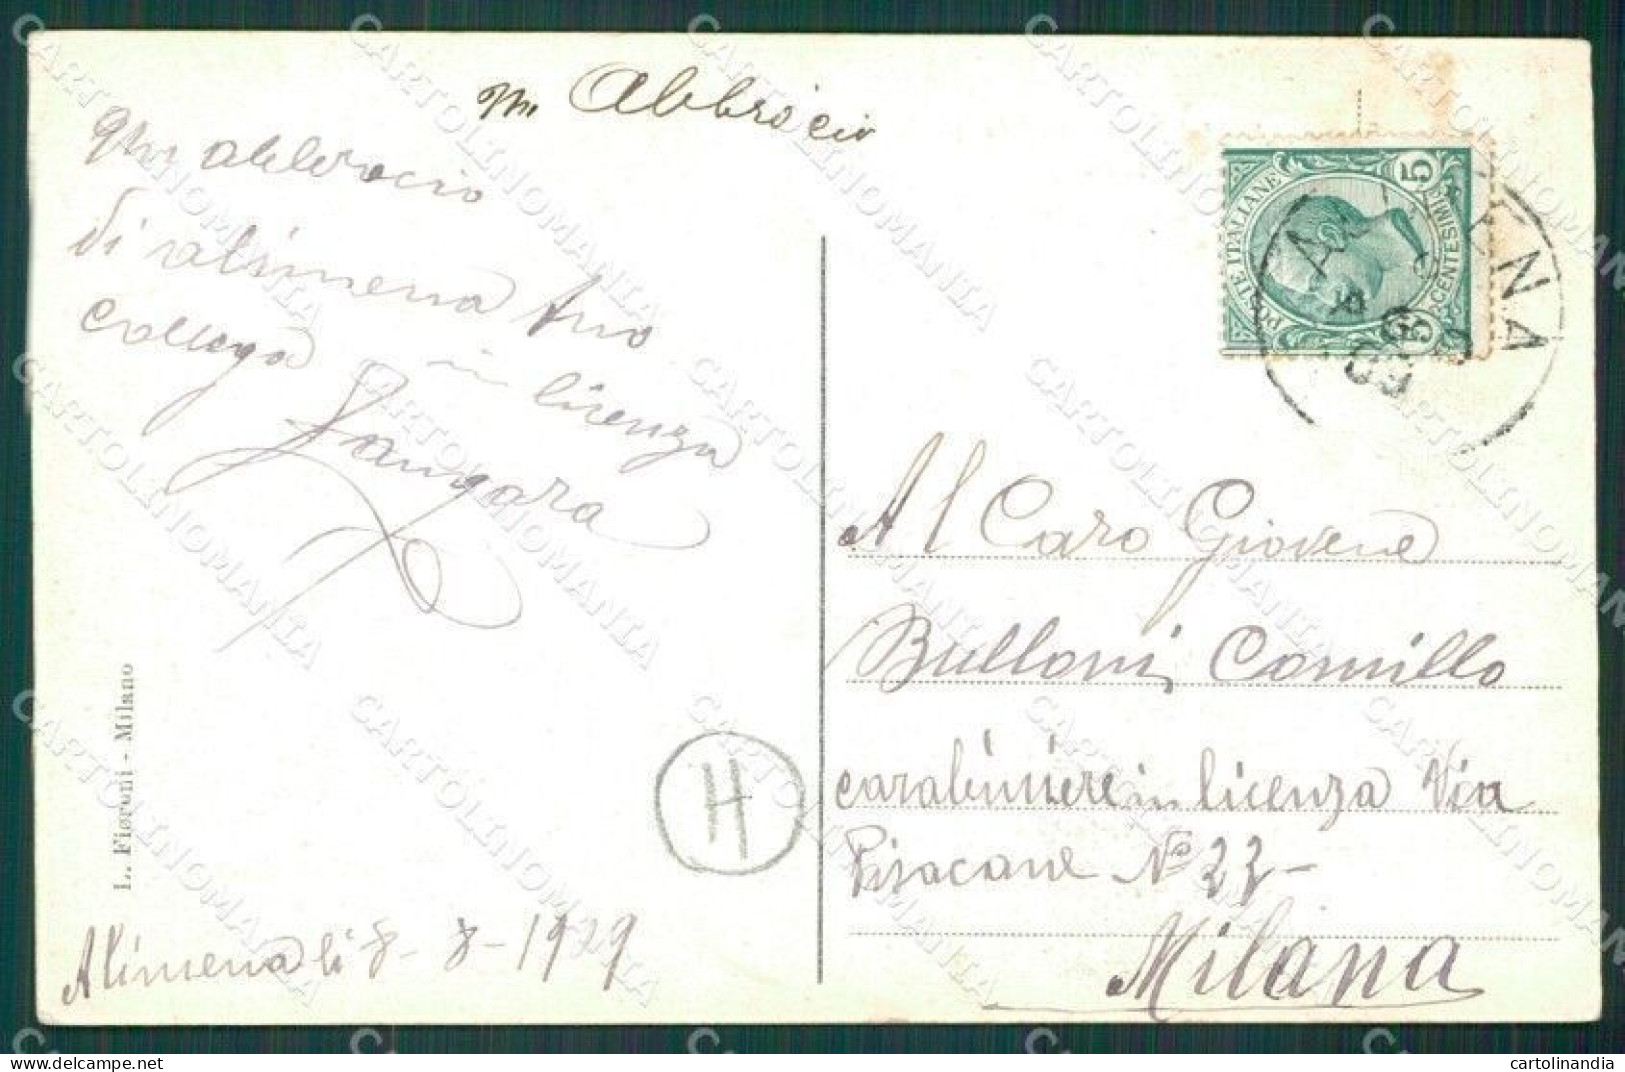 Un Abbraccio
Un abbraccio
di alimena tuo
collega in licenza
L. Fioroni - Milano
Alimena li 8-8-1929
POSTE ITALIANE
CENTESIMI
5
5
Al Caro Giovene
Bulloni Comillo
carabiniere in licenza Via
Pisacane No 22-
Milana
H
CARTOLINOMANIA
cartolinandia